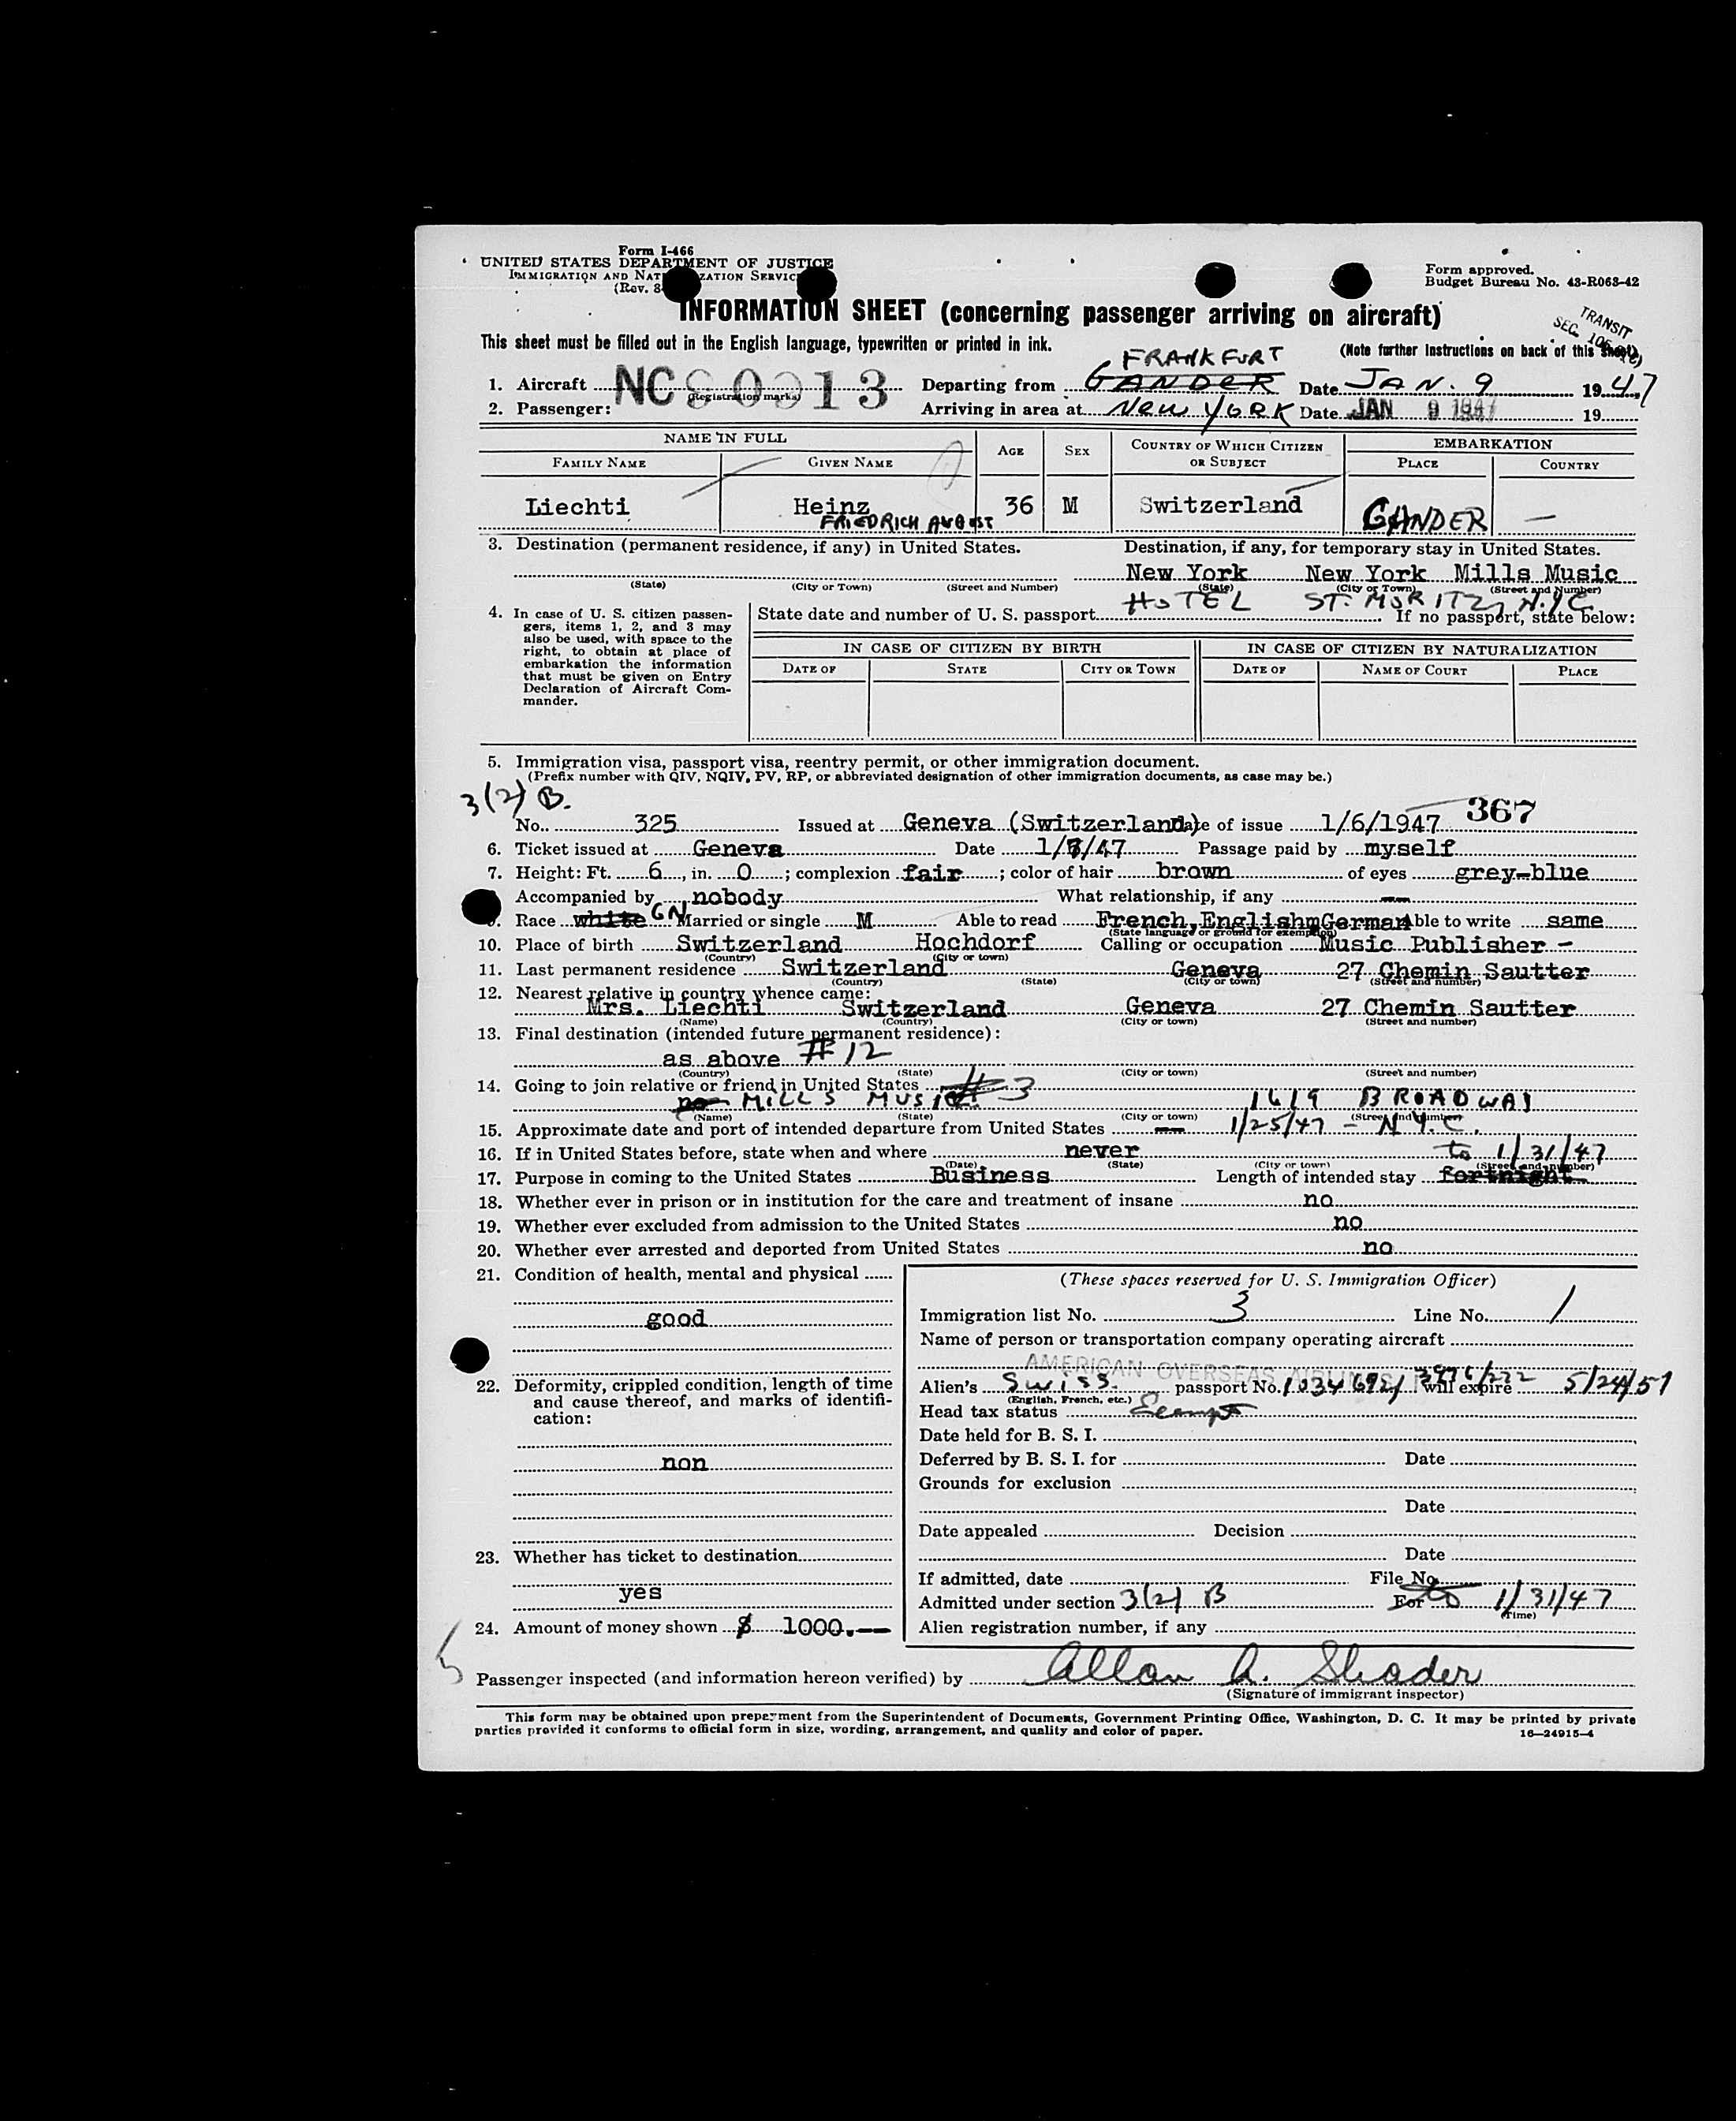 Form I-466
UNITED STATES DEPARTMENT OF JUSTICE
IMMIGRATION AND NATURALIZATION SERVICE
(Rev. 8-
Form approved.
Budget Bureau No. 43-R063-42
INFORMATION SHEET (concerning passenger arriving on aircraft)
TRANSIT
SEC.
This sheet must be filled out in the English language, typewritten or printed in ink.
(Note further instructions on back of this sheet)
FRANKFURT
1. Aircraft NC 90913 Departing from GANDER Date JAN. 9 1947
(Registration marks)
2. Passenger: Arriving in area at NEW YORK Date JAN 9 1947 19
NAME IN FULL
FAMILY NAME GIVEN NAME AGE SEX COUNTRY OF WHICH CITIZEN OR SUBJECT EMBARKATION
PLACE COUNTRY
Liechti Heinz 36 M Switzerland GANDER —
FRIEDRICH AUGUST
3. Destination (permanent residence, if any) in United States. Destination, if any, for temporary stay in United States.
New York New York Mills Music
(State) (City or Town) (Street and Number) (State) (City or Town) (Street and Number)
HOTEL ST. MORITZ, N.Y.C.
4. In case of U. S. citizen passen-
gers, items 1, 2, and 3 may
also be used, with space to the
right, to obtain at place of
embarkation the information
that must be given on Entry
Declaration of Aircraft Com-
mander.
State date and number of U. S. passport If no passport, state below:
IN CASE OF CITIZEN BY BIRTH IN CASE OF CITIZEN BY NATURALIZATION
DATE OF STATE CITY OR TOWN DATE OF NAME OF COURT PLACE
5. Immigration visa, passport visa, reentry permit, or other immigration document.
(Prefix number with QIV, NQIV, PV, RP, or abbreviated designation of other immigration documents, as case may be.)
3(2) B.
367
No. 325 Issued at Geneva (Switzerland) Date of issue 1/6/1947
6. Ticket issued at Geneva Date 1/ /47 Passage paid by myself
7. Height: Ft. 6, in. 0; complexion fair; color of hair brown of eyes grey-blue
Accompanied by nobody What relationship, if any --
9. Race white GN Married or single M Able to read French, EnglishmGerman Able to write same
(State language or ground for exemption)
10. Place of birth Switzerland Hochdorf Calling or occupation Music Publisher -
(Country) (City or town)
11. Last permanent residence Switzerland Geneva 27 Chemin Sautter
(Country) (State) (City or town) (Street and number)
12. Nearest relative in country whence came:
Mrs. Liechti Switzerland Geneva 27 Chemin Sautter
(Name) (Country) (City or town) (Street and number)
13. Final destination (intended future permanent residence):
as above # 12
(Country) (State) (City or town) (Street and number)
14. Going to join relative or friend in United States # 3
no MILLS MUSIC 1619 BROADWAY
(Name) (State) (City or town) (Street and number)
15. Approximate date and port of intended departure from United States -- 1/25/47 - N.Y.C.
16. If in United States before, state when and where never to 1/31/47
(Date) (State) (City or town) (Street and number)
17. Purpose in coming to the United States Business Length of intended stay fortnight
18. Whether ever in prison or in institution for the care and treatment of insane no
19. Whether ever excluded from admission to the United States no
20. Whether ever arrested and deported from United States no
21. Condition of health, mental and physical
good
22. Deformity, crippled condition, length of time
and cause thereof, and marks of identifi-
cation:
non
23. Whether has ticket to destination
yes
24. Amount of money shown $ 1000.--
(These spaces reserved for U. S. Immigration Officer)
Immigration list No. 3 Line No. 1
Name of person or transportation company operating aircraft
AMERICAN OVERSEAS AIRLINES
Alien's Swiss passport No. 1034692/ 3976/272 will expire 5/24/51
(English, French, etc.)
Head tax status Exempt
Date held for B. S. I.
Deferred by B. S. I. for Date
Grounds for exclusion
Date
Date appealed Decision
Date
If admitted, date File No.
Admitted under section 3(2) B For to 1/31/47
(Time)
Alien registration number, if any
Passenger inspected (and information hereon verified) by Allan A. Shader
(Signature of immigrant inspector)
This form may be obtained upon prepayment from the Superintendent of Documents, Government Printing Office, Washington, D. C. It may be printed by private
parties provided it conforms to official form in size, wording, arrangement, and quality and color of paper.
16—24915-4